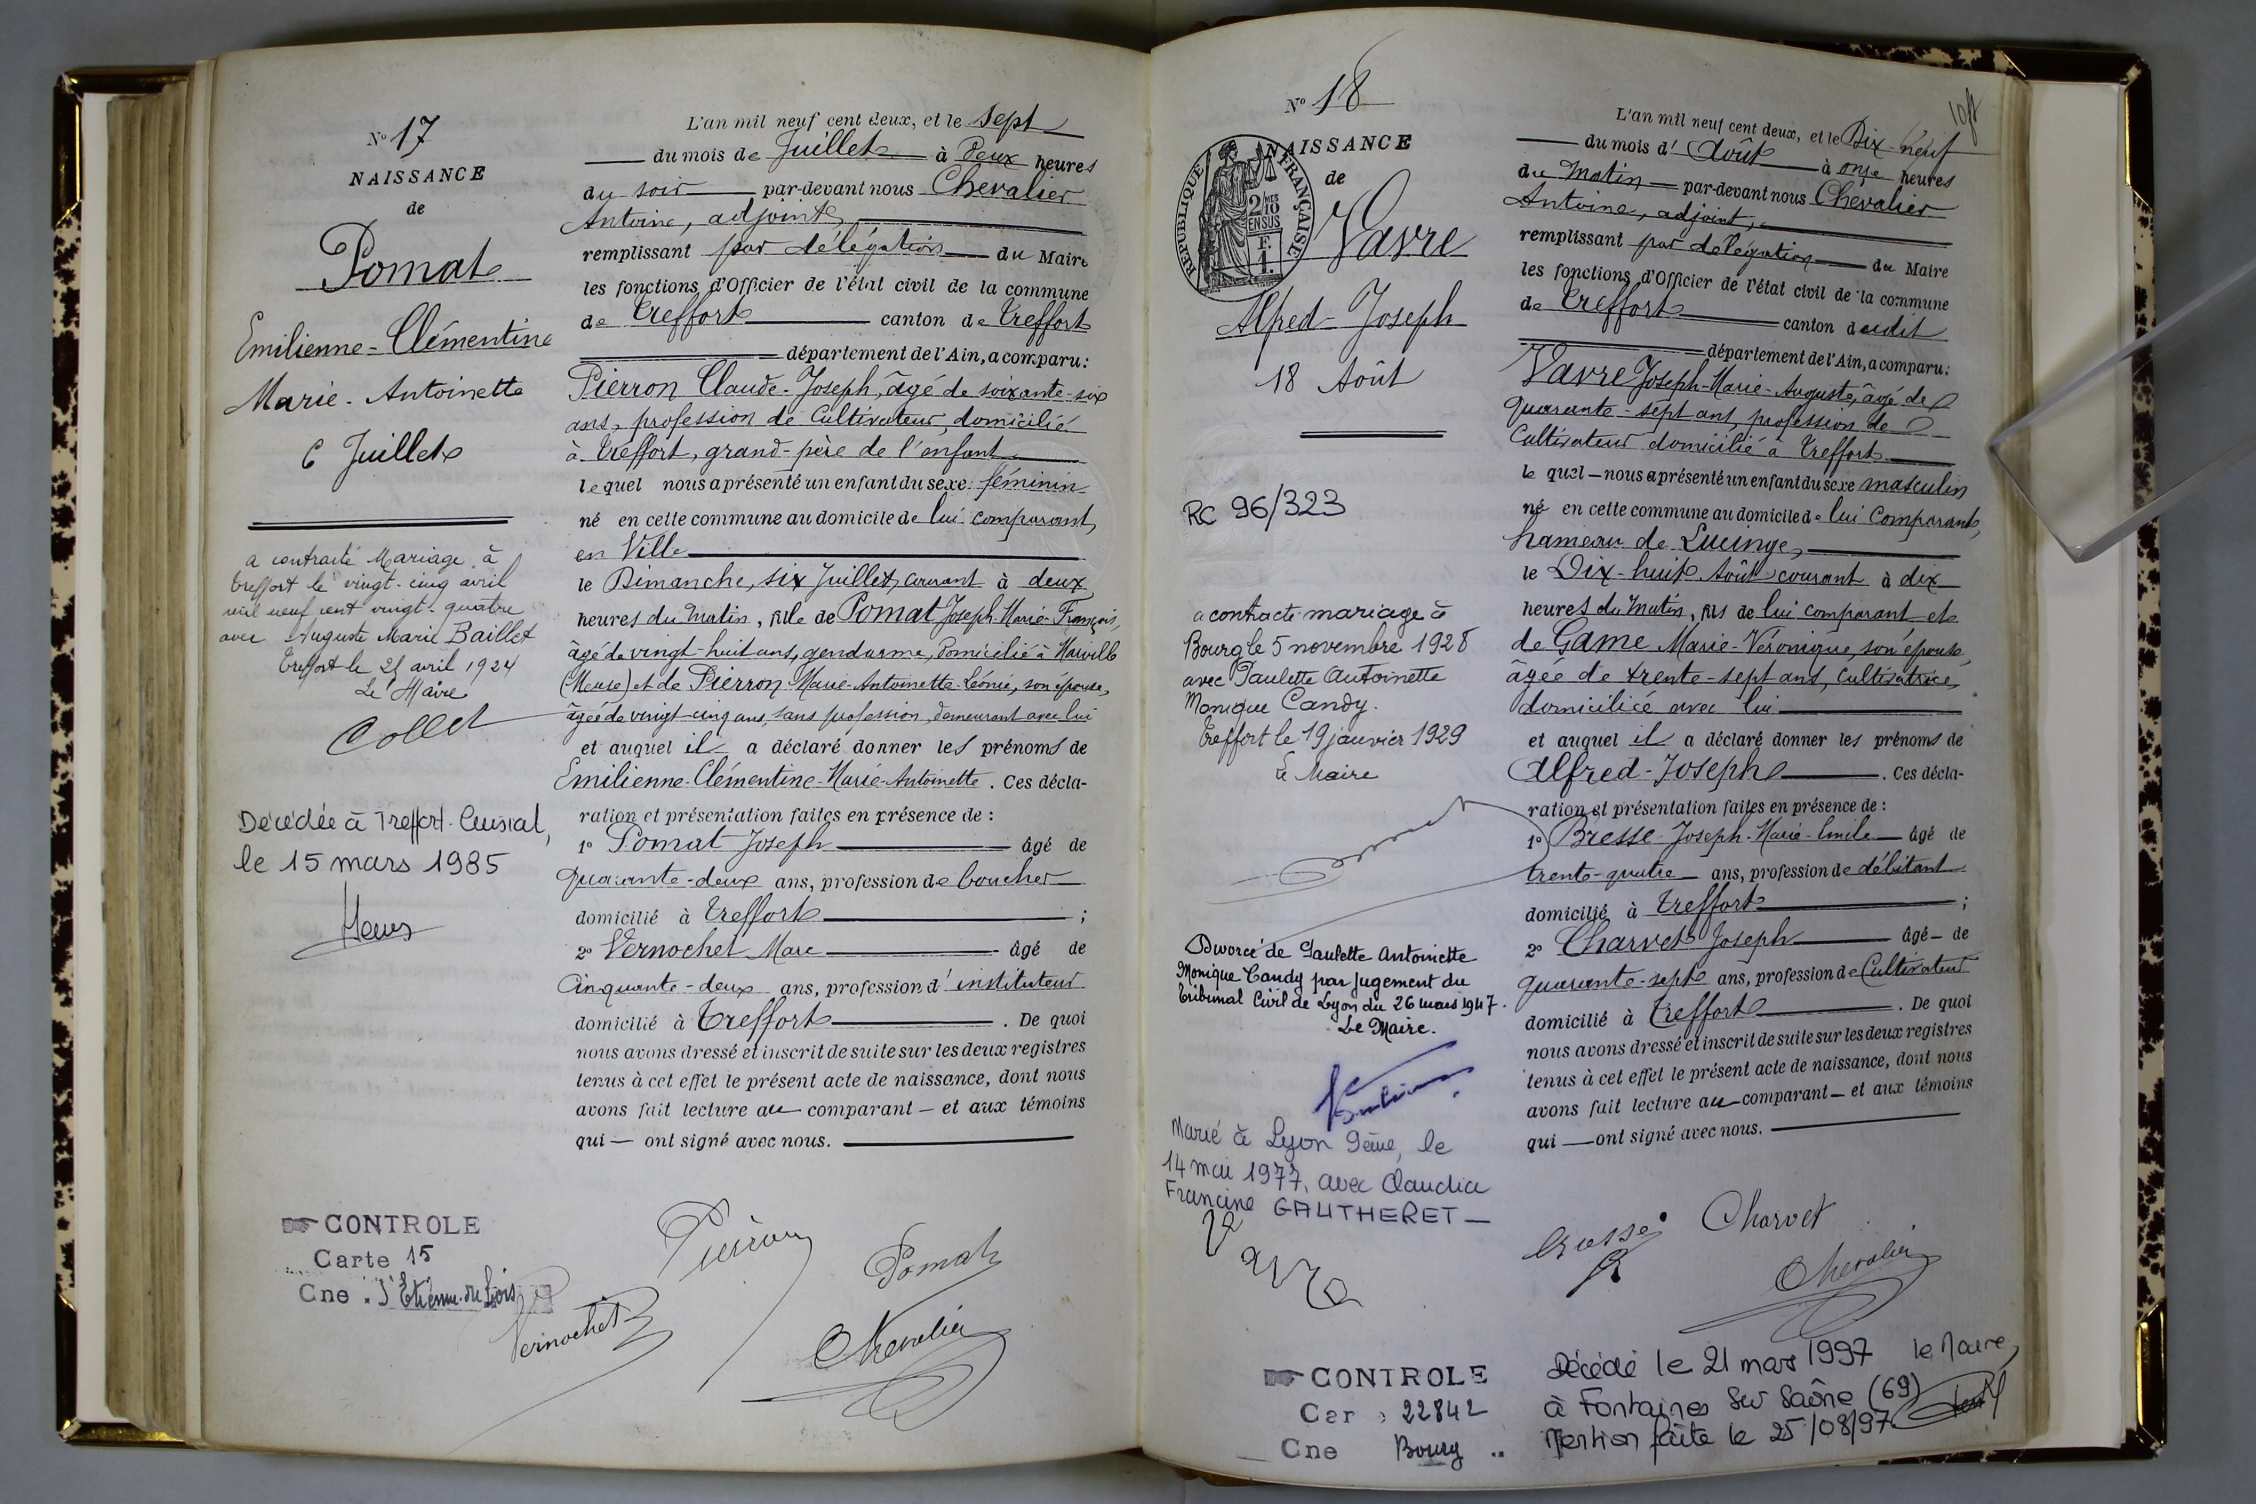 N° 17
NAISSANCE
de
Pomat
Emilienne-Clémentine
Marie-Antoinette
6 Juillet
a contracté Mariage à
Treffort le vingt-cinq avril
mil neuf cent vingt-quatre
avec Auguste Marie Baillet
Treffort le 25 avril 1924
Le Maire
Collet
Décédée à Treffort-Cuisiat,
le 15 mars 1985
CONTROLE
Carte 15
Cne St Etienne du Bois
L'an mil neuf cent deux, et le sept
du mois de Juillet à Deux heures
du soir par-devant nous Chevalier
Antoine, adjoint,
remplissant par délégation du Maire
les fonctions d'Officier de l'état civil de la commune
de Treffort canton de Treffort
département de l'Ain, a comparu:
Pierron Claude-Joseph, âgé de soixante-six
ans, profession de Cultivateur, domicilié
à Treffort, grand-père de l'enfant
lequel nous a présenté un enfant du sexe féminin
né en cette commune au domicile de lui comparant,
en Ville
le Dimanche, six Juillet, courant à deux
heures du Matin, fille de Pomat Joseph-Marie-François,
âgé de vingt-huit ans, gendarme, domicilié à Marville
(Meuse) et de Pierron Marie-Antoinette-Léonie, son épouse,
âgée de vingt-cinq ans, sans profession, demeurant avec lui
et auquel il a déclaré donner les prénoms de
Emilienne-Clémentine-Marie-Antoinette. Ces décla-
ration et présentation faites en présence de :
1° Pomat Joseph âgé de
quarante-deux ans, profession de boucher
domicilié à Treffort ;
2° Vernochet Marc âgé de
Cinquante-deux ans, profession d'instituteur
domicilié à Treffort. De quoi
nous avons dressé et inscrit de suite sur les deux registres
tenus à cet effet le présent acte de naissance, dont nous
avons fait lecture au comparant — et aux témoins
qui — ont signé avec nous.
Pierron
Pomat
Vernochet
Chevalier
N° 18
NAISSANCE
de
RÉPUBLIQUE FRANÇAISE
2/10 MES
EN SUS
F.
1.
Vavre
Alfred-Joseph
18 Août
RC 96/323
a contracté mariage à
Bourg le 5 novembre 1928
avec Paulette Antoinette
Monique Candy.
Treffort le 19 janvier 1929
Le Maire
Divorcé de Paulette Antoinette
Monique Candy par jugement du
Tribunal Civil de Lyon du 26 mars 1947.
Le Maire.
Marié à Lyon 9ème, le
14 mai 1977, avec Claudia
Francine GAUTHERET —
CONTROLE
Car 22842
Cne Bourg
L'an mil neuf cent deux, et le Dix-neuf
du mois d'Août à onze heures
du Matin par-devant nous Chevalier
Antoine, adjoint,
remplissant par délégation du Maire
les fonctions d'Officier de l'état civil de la commune
de Treffort canton dudit
département de l'Ain, a comparu:
Vavre Joseph-Marie-Auguste, âgé de
quarante-sept ans, profession de
Cultivateur domicilié à Treffort
lequel — nous a présenté un enfant du sexe masculin
né en cette commune au domicile de lui Comparant,
hameau de Lucinge,
le Dix-huit Août courant à dix
heures du Matin, fils de lui comparant, et
de Game Marie-Véronique, son épouse,
âgée de trente-sept ans, Cultivatrice,
domiciliée avec lui
et auquel il a déclaré donner les prénoms de
Alfred-Joseph. Ces décla-
ration et présentation faites en présence de :
1° Bresse Joseph-Marie-Emile âgé de
trente-quatre ans, profession de débitant
domicilié à Treffort ;
2° Charvet Joseph âgé de
quarante-sept ans, profession de Cultivateur
domicilié à Treffort. De quoi
nous avons dressé et inscrit de suite sur les deux registres
tenus à cet effet le présent acte de naissance, dont nous
avons fait lecture au comparant — et aux témoins
qui — ont signé avec nous.
Vavre
Bresse
Charvet
Chevalier
Décédé le 21 mars 1997 le Maire,
à Fontaines sur Saône (69)
Mention faite le 25/08/97